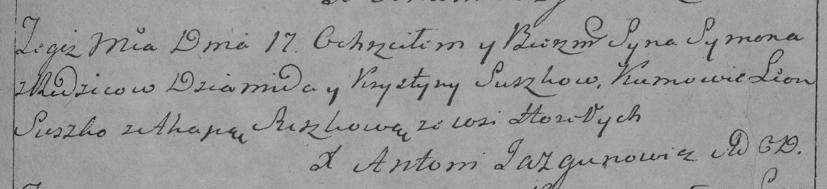 Tegiż Mca Dnia 17. Ochrzciłem y Bierzm Syna Symona
z Rodzicow Dziamida y Krystyny Suszkow, Kumowie Lion
Suszko z Ahapą Suszkową ze wsi
X Antoni Jazgunowicz